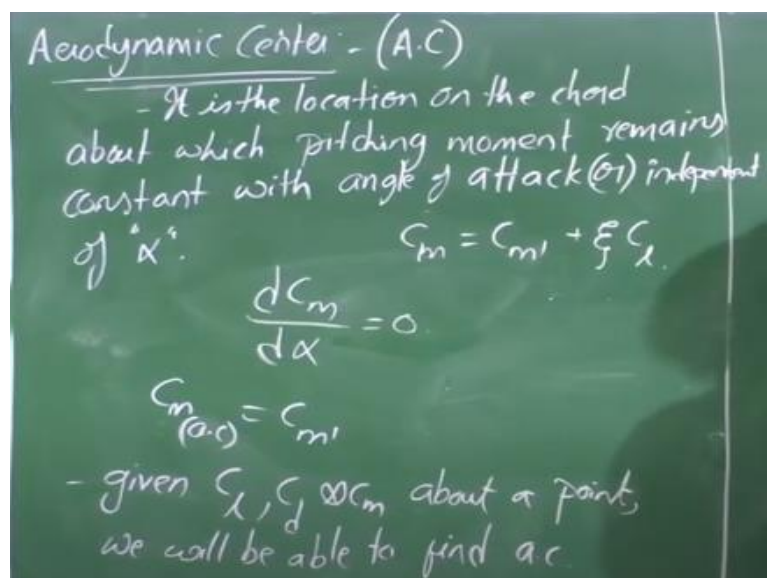 Aerodynamic Center - (A.C)
- It is the location on the chord
about which pitching moment remains
constant with angle of attack (or) independent
of "α".
Cm = Cm' + ξ Cl.
dCm/dα = 0.
Cm(a.c) = Cm'
- given Cl, Cd & Cm about a point,
we will be able to find a.c